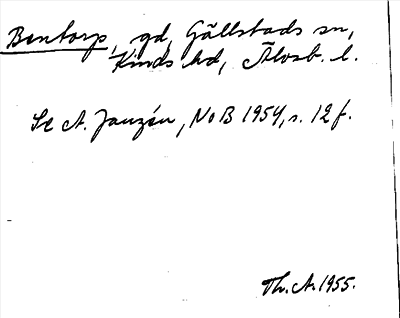 Bentorp, gd, Gällstads sn,
Kinds hd, Älvsb. l.
Se A. Janzén, NoB 1954, s. 12 f.
Th. A. 1955.